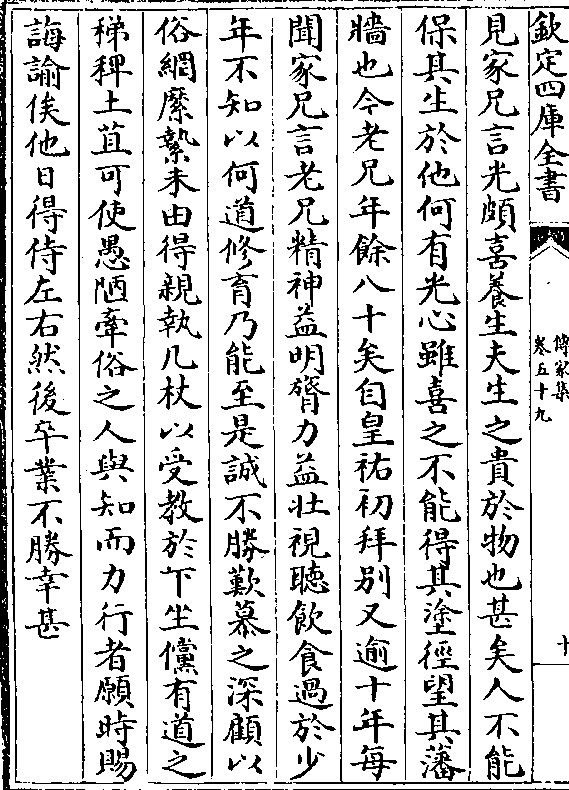 欽定四庫全書
傳家集
卷五十九
十
見家兄言光頗喜養生夫生之貴於物也甚矣人不能
保其生於他何有光心雖喜之不能得其塗徑望其藩
牆也今老兄年餘八十矣自皇祐初拜別又逾十年每
聞家兄言老兄精神益明膂力益壯視聽飲食過於少
年不知以何道修育乃能至是誠不勝歎慕之深顧以
俗網縻縶未由得親執几杖以受教於下坐儻有道之
稊稗土苴可使愚陋牽俗之人與知而力行者願時賜
誨諭俟他日得侍左右然後卒業不勝幸甚